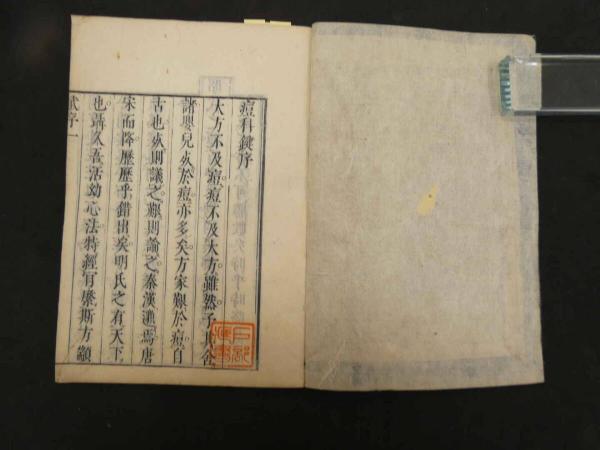 痘科鍵序
大方不及痘痘不及大方雖然子
諸嬰兒 於痘亦多矣方家艱於痘自
古也 則議之艱則論之秦漢邈焉唐
宋而降歷歷乎錯出矣明氏之有天下
也聶久吾活幼心法特經官 斯方顓
弍序一